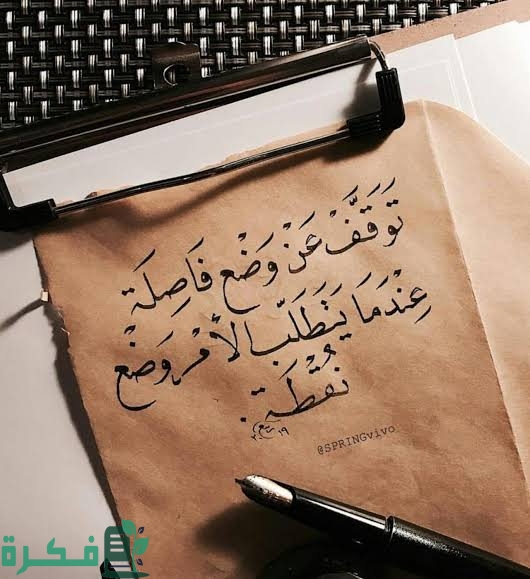 تَوَقَّفْ عَنْ وَضْعِ فَاصِلَة
عِنْدَمَا يَتَطَلَّبُ الأَمْر وَضْعَ
نُقْطَة.
@SPRINGvivo
فكرة